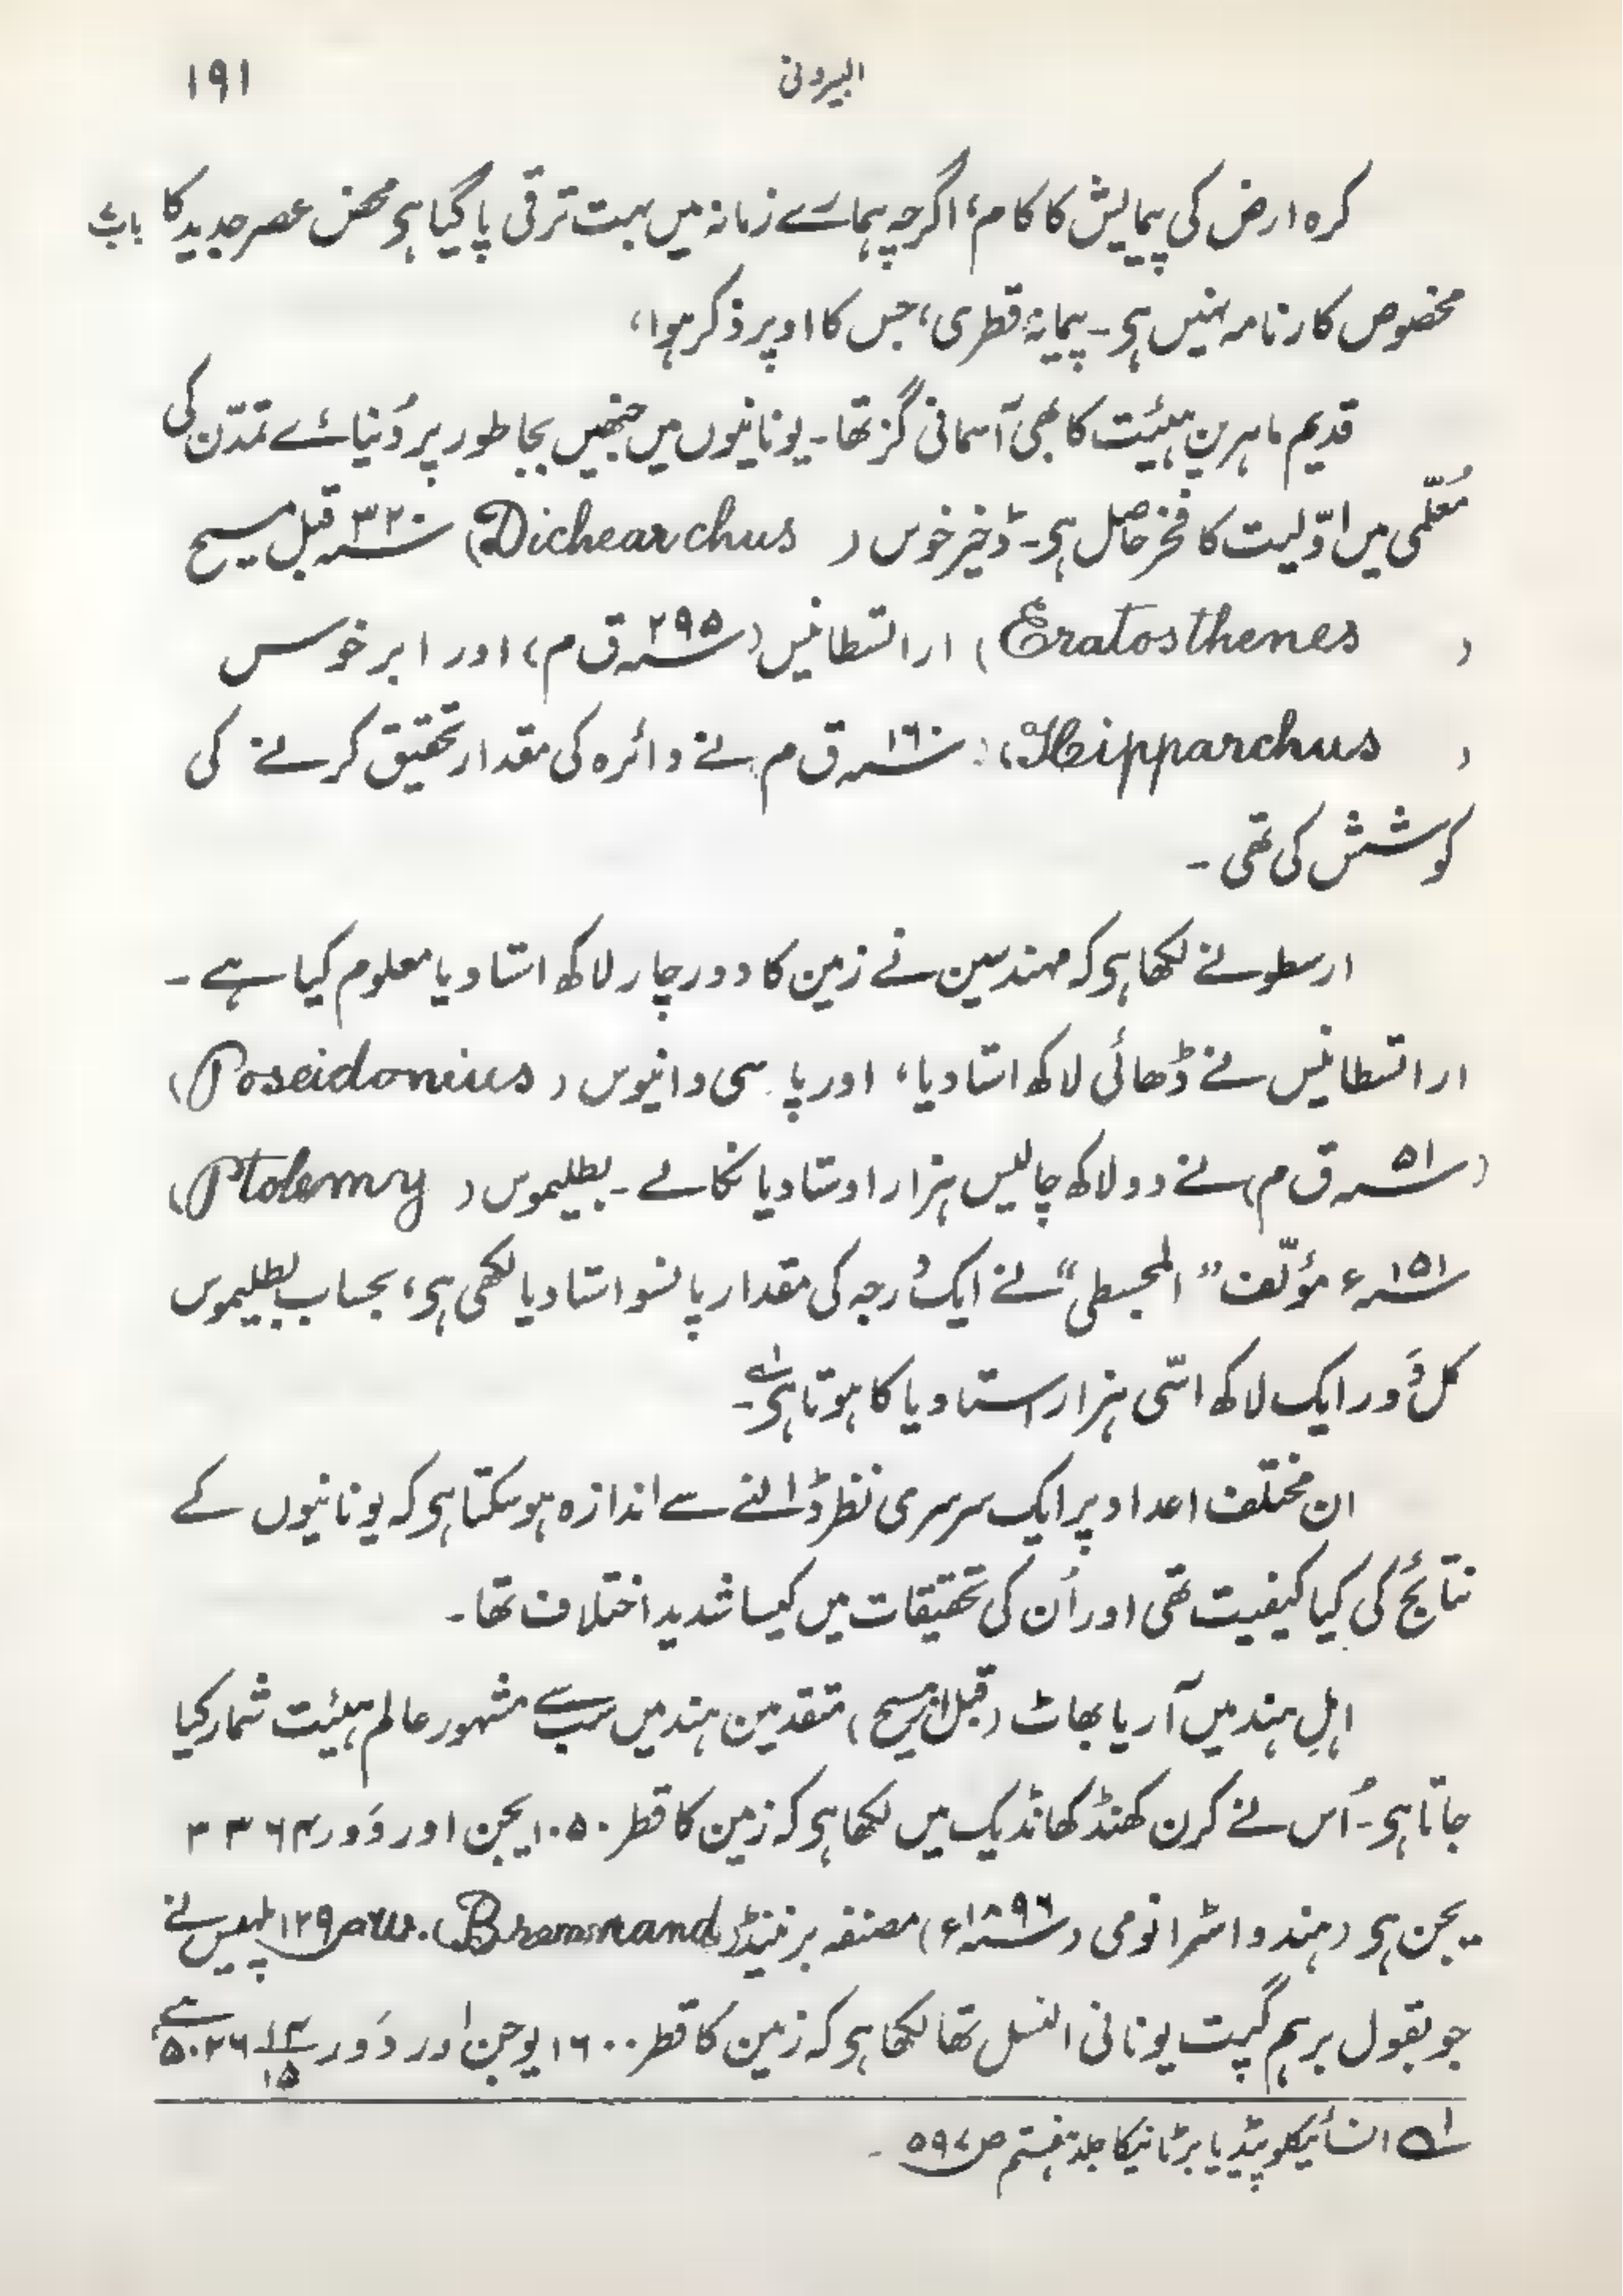 البیرونی ۱۹۱
کرہ ارض کی پیمایش کا کام، اگرچہ ہمارے زمانہ میں بہت ترقی پا گیا ہی محض عصر جدید کا باب
مخصوص کارنامہ نہیں ہی۔ پیمانۂ قطری، جس کا اوپر ذکر ہوا،
قدیم ماہرینِ ہیئت کا بھی آسمانی گز تھا۔ یونانیوں میں جنھیں بجا طور پر دُنیائے تمدّن کی
مُعلّمی میں اوّلیت کا فخر حاصل ہی۔ ڈخیرخوس (Dichearchus) ۳۲۰؁ قبل مسیح
(Eratosthenes) اراتسطانیس (۲۹۵؁ ق م) اور ابرخوس
(Hipparchus) ۱۶۰؁ ق م نے دائرہ کی مقدار تحقیق کرنے کی
کوشش کی تھی۔
ارسطو نے لکھا ہی کہ مہندسین نے زمین کا دور چار لاکھ استادیا معلوم کیا ہے۔
اراتسطانیس نے ڈھائی لاکھ استادیا، اور پاسی دانیوس (Poseidonius)
(۵۱؁ ق م) نے دو لاکھ چالیس ہزار اوستادیا نکالے۔ بطلیموس (Ptolemy)
۱۵۱؁ء مؤلّف "المجسطی" نے ایک درجہ کی مقدار پانسو استادیا لکھی ہی، بحساب بطلیموس
کل دَور ایک لاکھ اسّی ہزار استادیا کا ہوتا ہی۱؎۔
ان مختلف اعداد پر ایک سرسری نظر ڈالنے سے اندازہ ہوسکتا ہی کہ یونانیوں کے
نتائج کی کیا کیفیت تھی اور اُن کی تحقیقات میں کیسا شدید اختلاف تھا۔
اہلِ ہند میں آریا بھاٹ (قبل از مسیح) متقدمین ہند میں سب سے مشہور عالم ہیئت شمار کیا
جاتا ہی۔ اُس نے کرن کھنڈ کھانڈیک میں لکھا ہی کہ زمین کا قطر ۱۰۵۰ یجن اور دَور ۳۳۶۴
یجن ہی (ہندو اسٹرانومی (۱۸۹۶؁ء) مصنفہ برنینڈ (Bremmand ص ۱۲۹ پلیس نے
جو بقول برہم گپت یونانی النسل تھا لکھا ہی کہ زمین کا قطر ۱۶۰۰ یوجن اور دَور ۵۰۲۶ ۱۴/۱۵ ہے
۱؎ انسائیکلوپیڈیا برٹانیکا جلد ہفتم ص ۵۹۷۔